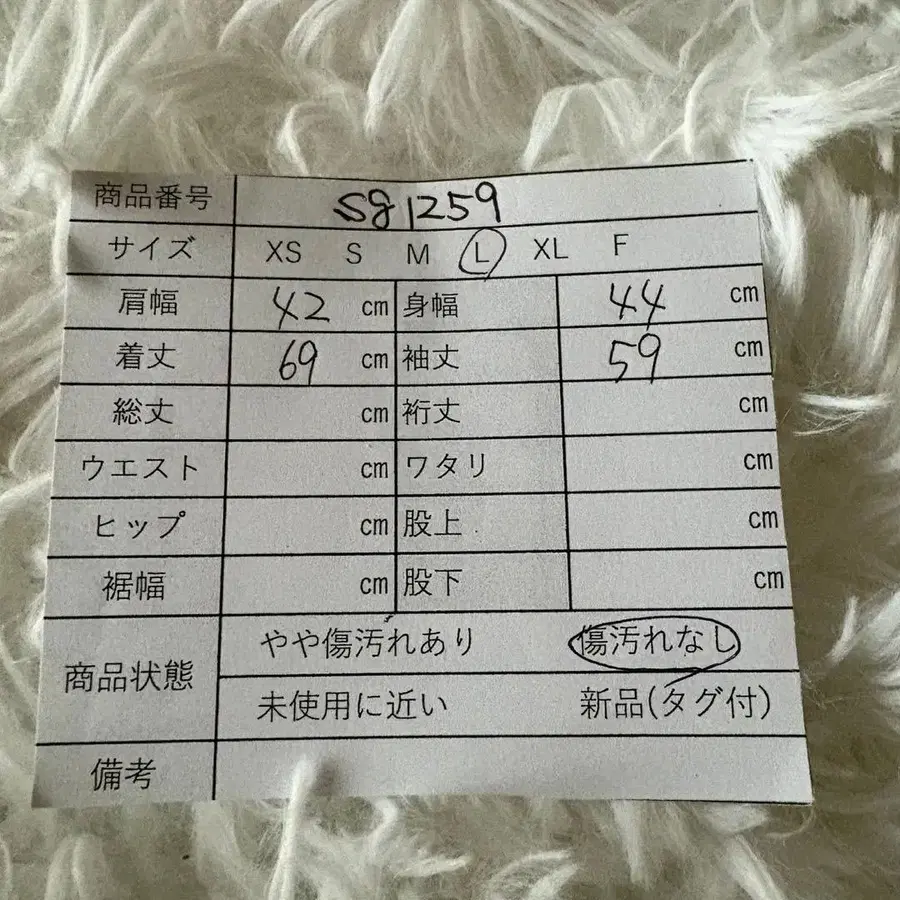 商品番号 sg1259
サイズ XS S M L XL F
肩幅 42 cm 身幅 44 cm
着丈 69 cm 袖丈 59 cm
総丈 cm 裄丈 cm
ウエスト cm ワタリ cm
ヒップ cm 股上 cm
裾幅 cm 股下 cm
商品状態 やや傷汚れあり 傷汚れなし
未使用に近い 新品(タグ付)
備考